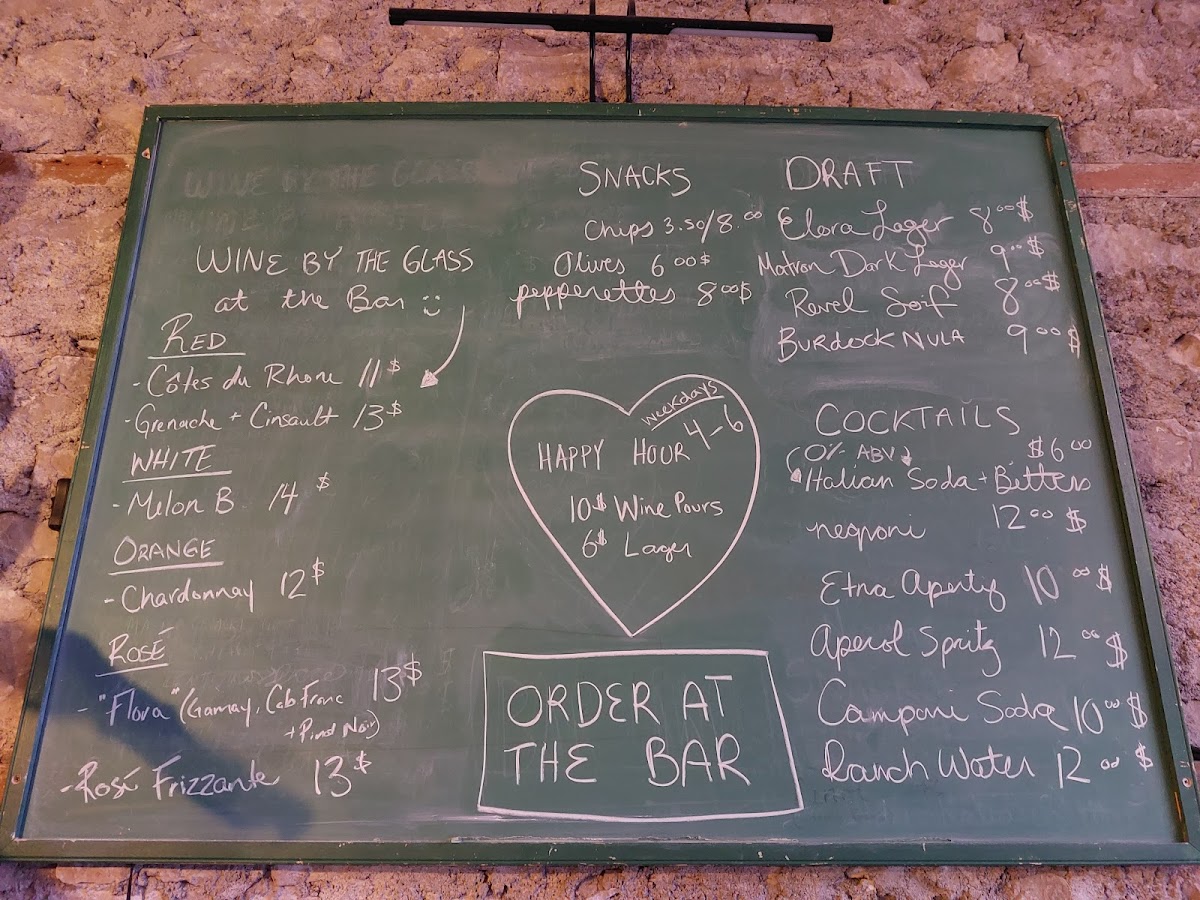 WINE BY THE GLASS
at the Bar :)
RED
- Côtes du Rhone 11$
- Grenache + Cinsault 13$
WHITE
- Melon B 14$
ORANGE
- Chardonnay 12$
ROSÉ
- "Flora" (Gamay, Cab Franc 13$
+ Pinot Noir)
- Rosé Frizzante 13$
SNACKS
Chips 3.50/8.00
Olives 6.00$
pepperettes 8.00$
weekdays
HAPPY HOUR 4-6
10$ Wine Pours
6$ Lager
ORDER AT
THE BAR
DRAFT
Elora Lager 8.00$
Matron Dark Lager 9.00$
Revel Soif 8.00$
BURDOCK NULA 9.00$
COCKTAILS
(0% ABV) $6.00
Italian Soda + Bitters
negroni 12.00$
Etna 10.00$
Aperol Spritz 12.00$
Campari Soda 10.00$
Ranch Water 12.00$